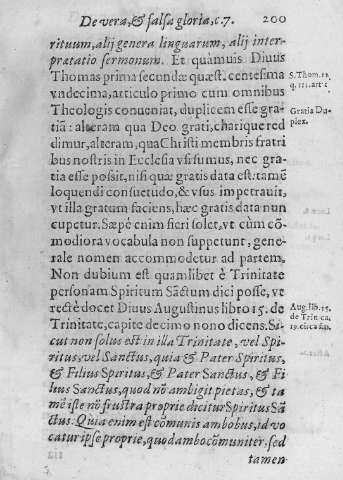 De vera, & falsa gloria, c.7. 200
rituum, alij genera linguarum, alij inter-
pretatio sermonum. Et quamuis Diuus
Thomas prima secundæ quæst. centesima
vndecima, articulo primo cum omnibus
Theologis conueniat, duplicem esse gra-
tiã: alteram qua Deo grati, charique red
dimur, alteram, qua Christi membris fratri
bus nostris in Ecclesia vsi sumus, nec gra-
tia esse possit, nisi quæ gratis data est: tamẽ
loquendi consuetudo, & vsus impetrauit,
vt illa gratum faciens, hæc gratis data nun
cupetur. Sæpè enim fieri solet, vt cùm cõ-
modiora vocabula non suppetunt, gene-
rale nomen accommodetur ad partem.
Non dubium est quamlibet è Trinitate
personam Spiritum Sãctum dici posse, vt
rectè docet Diuus Augustinus libro 15. de
Trinitate, capite decimo nono dicens. Si-
cut non solus est in illa Trinitate, vel Spi-
ritus, vel Sanctus, quia & Pater Spiritus,
& Filius Spiritus, & Pater Sanctus, & Fi
lius Sanctus, quod nõ ambigit pietas, & ta
mẽ iste nõ frustra proprie dicitur Spiritus Sã
ctus. Quia enim est cõmunis ambobus, id vo
catur ipse proprie, quod ambo cõmuniter. sed
tamen
S. Thom. 12.
q. 111. art. 1
Gratia Du-
plex.
Aug. lib. 15.
de Trin. ca.
19. circa fin.